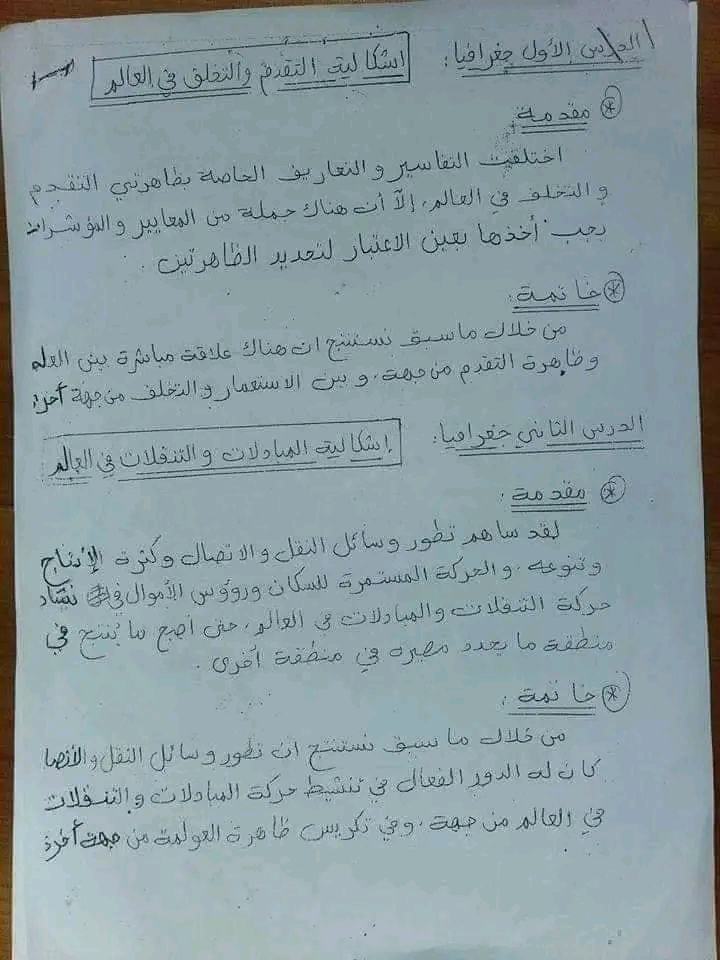 الدرس الأول جغرافيا: إشكالية التقدم والتخلف في العالم
* مقدمة
اختلفت التفاسير و التعاريف الخاصة بظاهرتي التقدم
و التخلف في العالم، إلاّ أن هناك جملة من المعايير و المؤشرات
يجب أخذها بعين الاعتبار لتحديد الظاهرتين.
* خاتمة:
من خلال ما سبق نستنتج أن هناك علاقة مباشرة بين العلم
و ظاهرة التقدم من جهة، و بين الاستعمار و التخلف من جهة أخرى
الدرس الثاني جغرافيا: إشكالية المبادلات و التنقلات في العالم
* مقدمة:
لقد ساهم تطور وسائل النقل و الاتصال و كثرة الإنتاج
و تنوعه، و الحركة المستمرة للسكان ورؤوس الأموال في
حركة التنقلات والمبادلات في العالم، حتى أصبح ما ينتج في
منطقة ما يحدد مصيره في منطقة أخرى.
* خاتمة:
من خلال ما سبق نستنتج أن تطور وسائل النقل و الاتصا
كان له الدور الفعال في تنشيط حركة المبادلات و التنقلات
في العالم من جهة، وفي تكريس ظاهرة العولمة من جهة أخرى